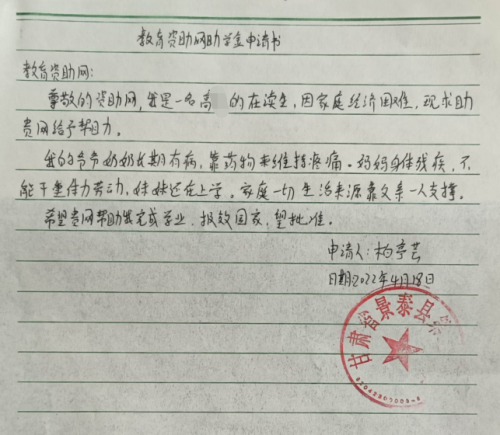 教育资助网助学金申请书
教育资助网:
尊敬的资助网,我是一名高 的在读生,因家庭经济困难,现求助
贵网给予帮助力。
我的爷爷奶奶长期有病,靠药物来维持疼痛。妈妈身体残疾,不
能干重体力劳动,妹妹还在上学。家庭一切生活来源靠父亲一人支撑。
希望贵网帮助我完成学业,报效国家,望批准。
申请人:柏亭芸
日期2022年4月18日
甘肃省景泰县